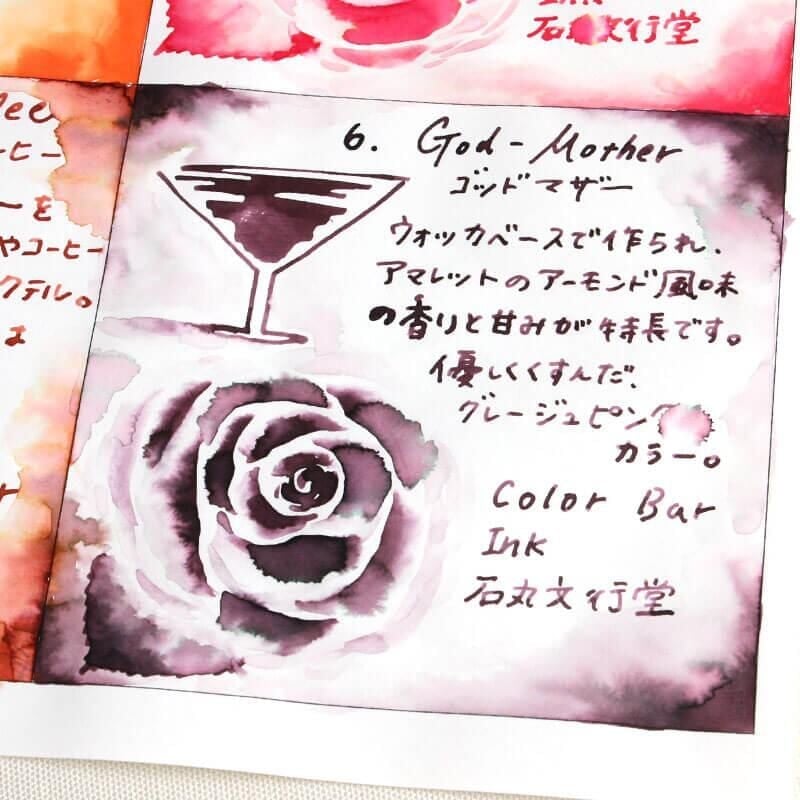 Ink
石丸文行堂
ーヒー
ーを
やコーヒー
クテル。
は
6. God-Mother
ゴッドマザー
ウォッカベースで作られ、
アマレットのアーモンド風味
の香りと甘みが特長です。
優しくくすんだ、
グレージュピンク
カラー。
Color Bar
Ink
石丸文行堂